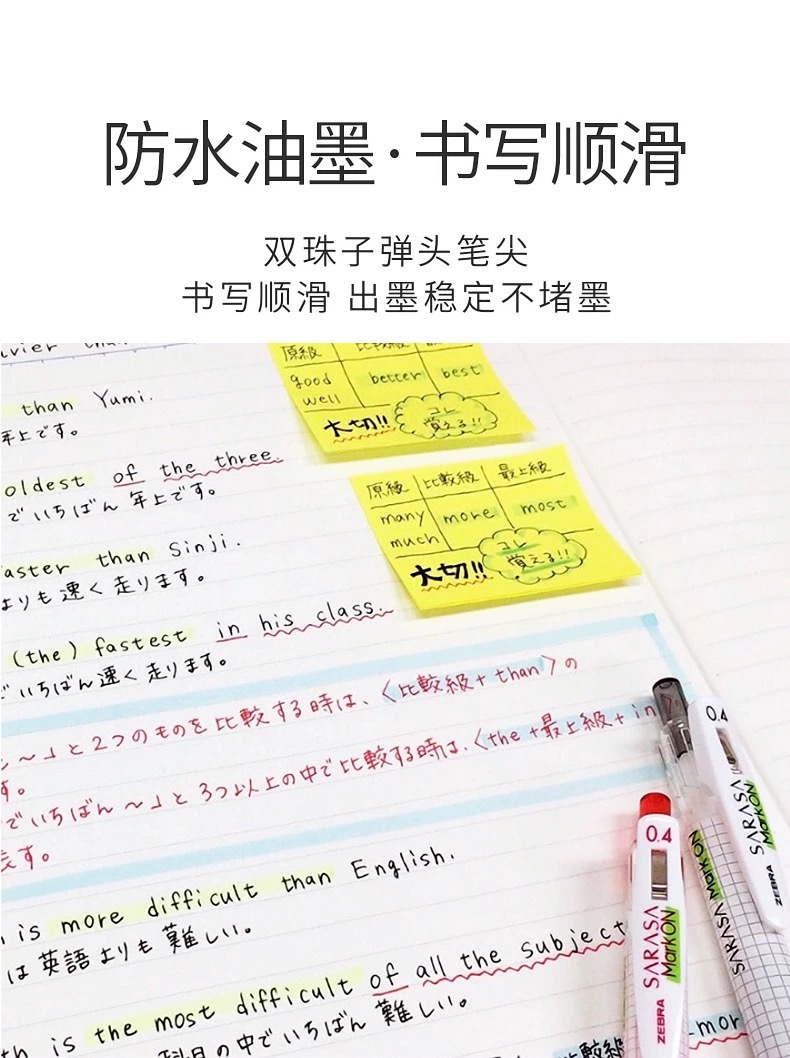 防水油墨·书写顺滑
双珠子弹头笔尖
书写顺滑 出墨稳定不堵墨
原級 比較級
good better best
well
大切!! コレ
覚える!!
than Yumi.
年上です。
oldest of the three.
でいちばん 年上です。
原級 比較級 最上級
many more most
much
大切!! コレ
覚える!!
aster than Sinji.
よりも速く走ります。
(the) fastest in his class.
いちばん速く走ります。
〜」と2つのものを比較する時は、〈比較級+than〉の
す。
でいちばん〜」と3つ以上の中で比較する時は、〈the+最上級+in
表す。
is more difficult than English.
は英語よりも難しい。
is the most difficult of all the subject
科目の中でいちばん難しい。
比較級
mor
0.4
SARASA
MarkON
ZEBRA
SARASA MarkON
0.4
SARASA
MarkON
ZEBRA